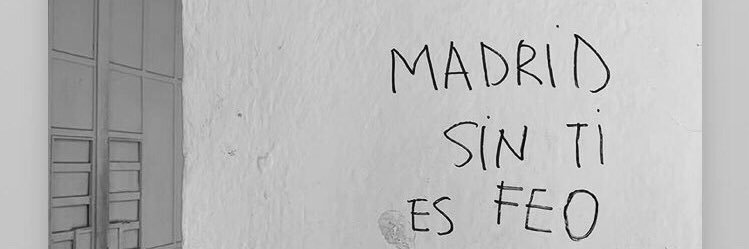 MADRiD
SiN Ti
ES FEO